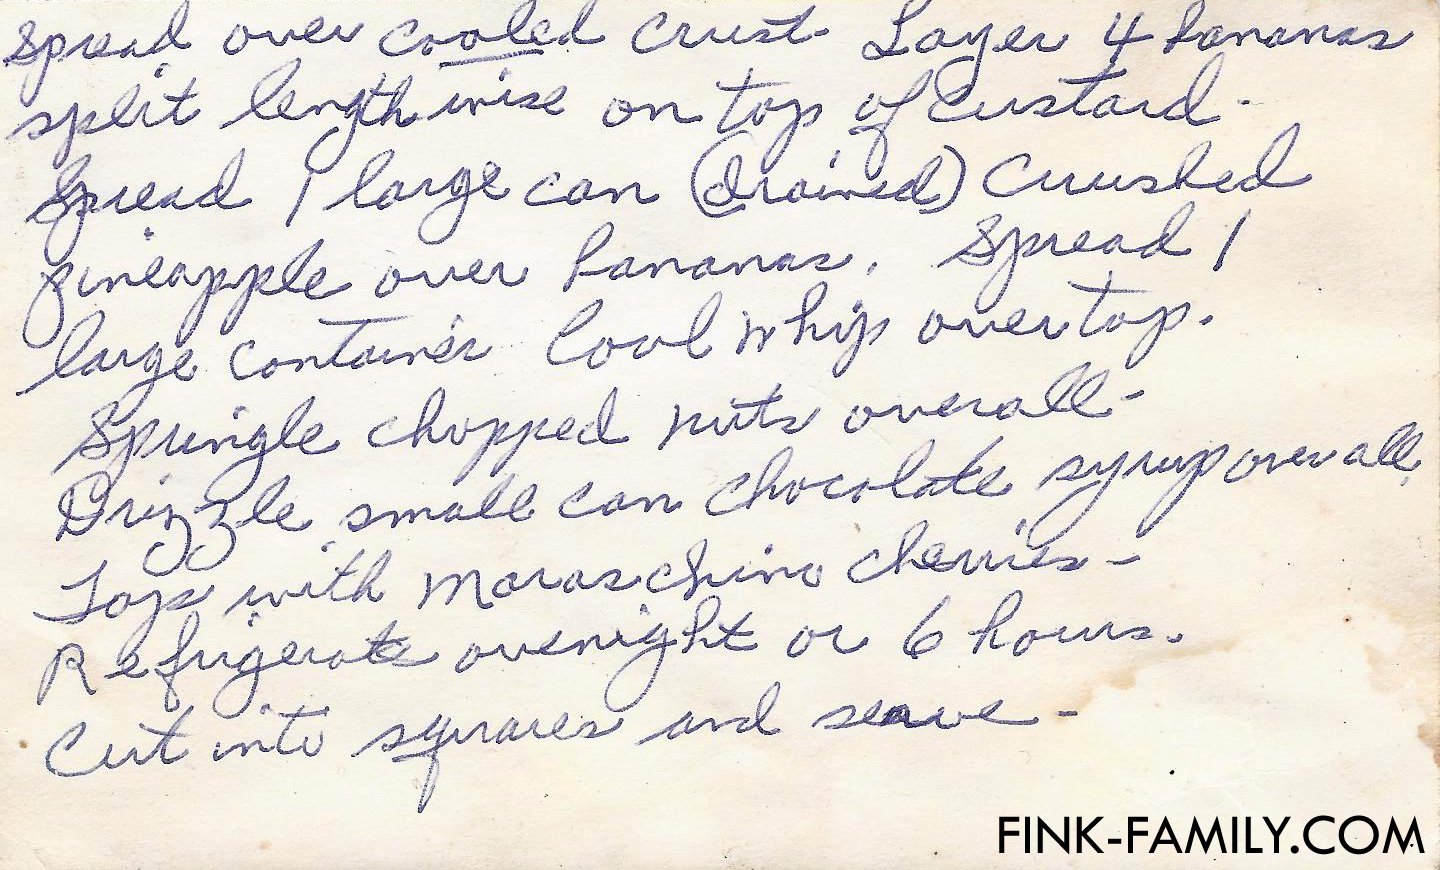 Spread over cooled crust. Layer 4 bananas
split lengthwise on top of custard -
Spread 1 large can (drained) crushed
pineapple over bananas. Spread 1
large container Cool Whip over top.
Springle chopped nuts overall -
Drizzle small can chocolate syrup over all.
Top with Maraschino cherries -
Refrigerate overnight or 6 hours.
Cut into squares and serve -
FINK-FAMILY.COM